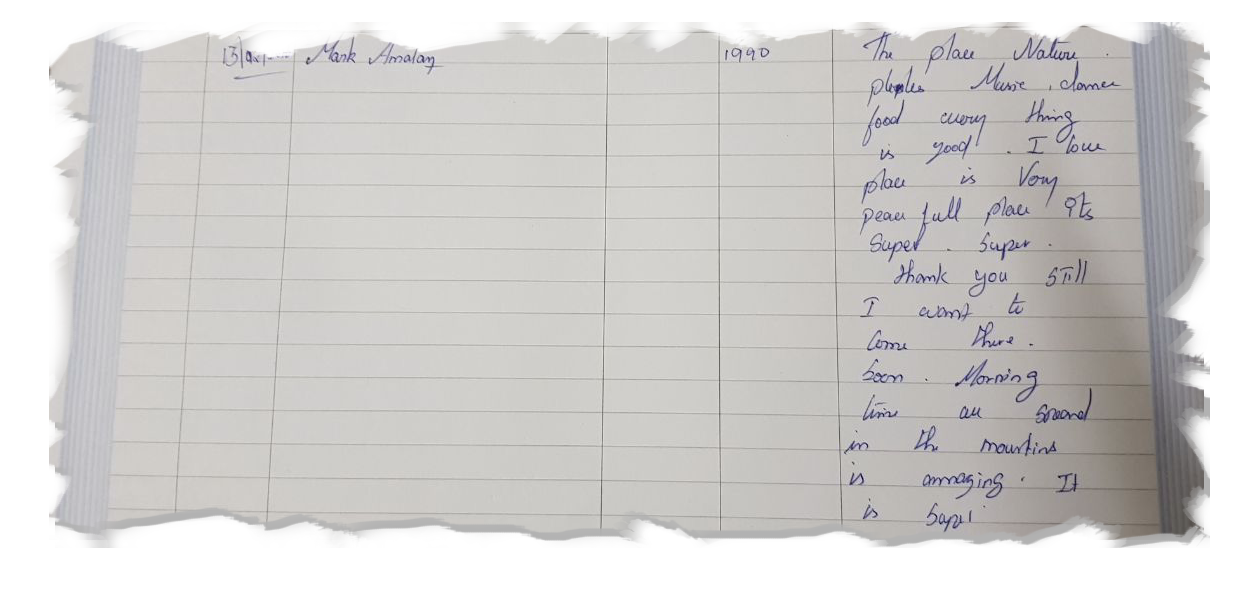 Mark Amalan 1990 The place Nature.
Music, dance
food every thing
is good. I love
place is Very
peacefull place Its
Super. Super.
thank you still
I want to
Come there.
Soon. Morning
time all sound
in the mountins
is amnazing. It
is Super